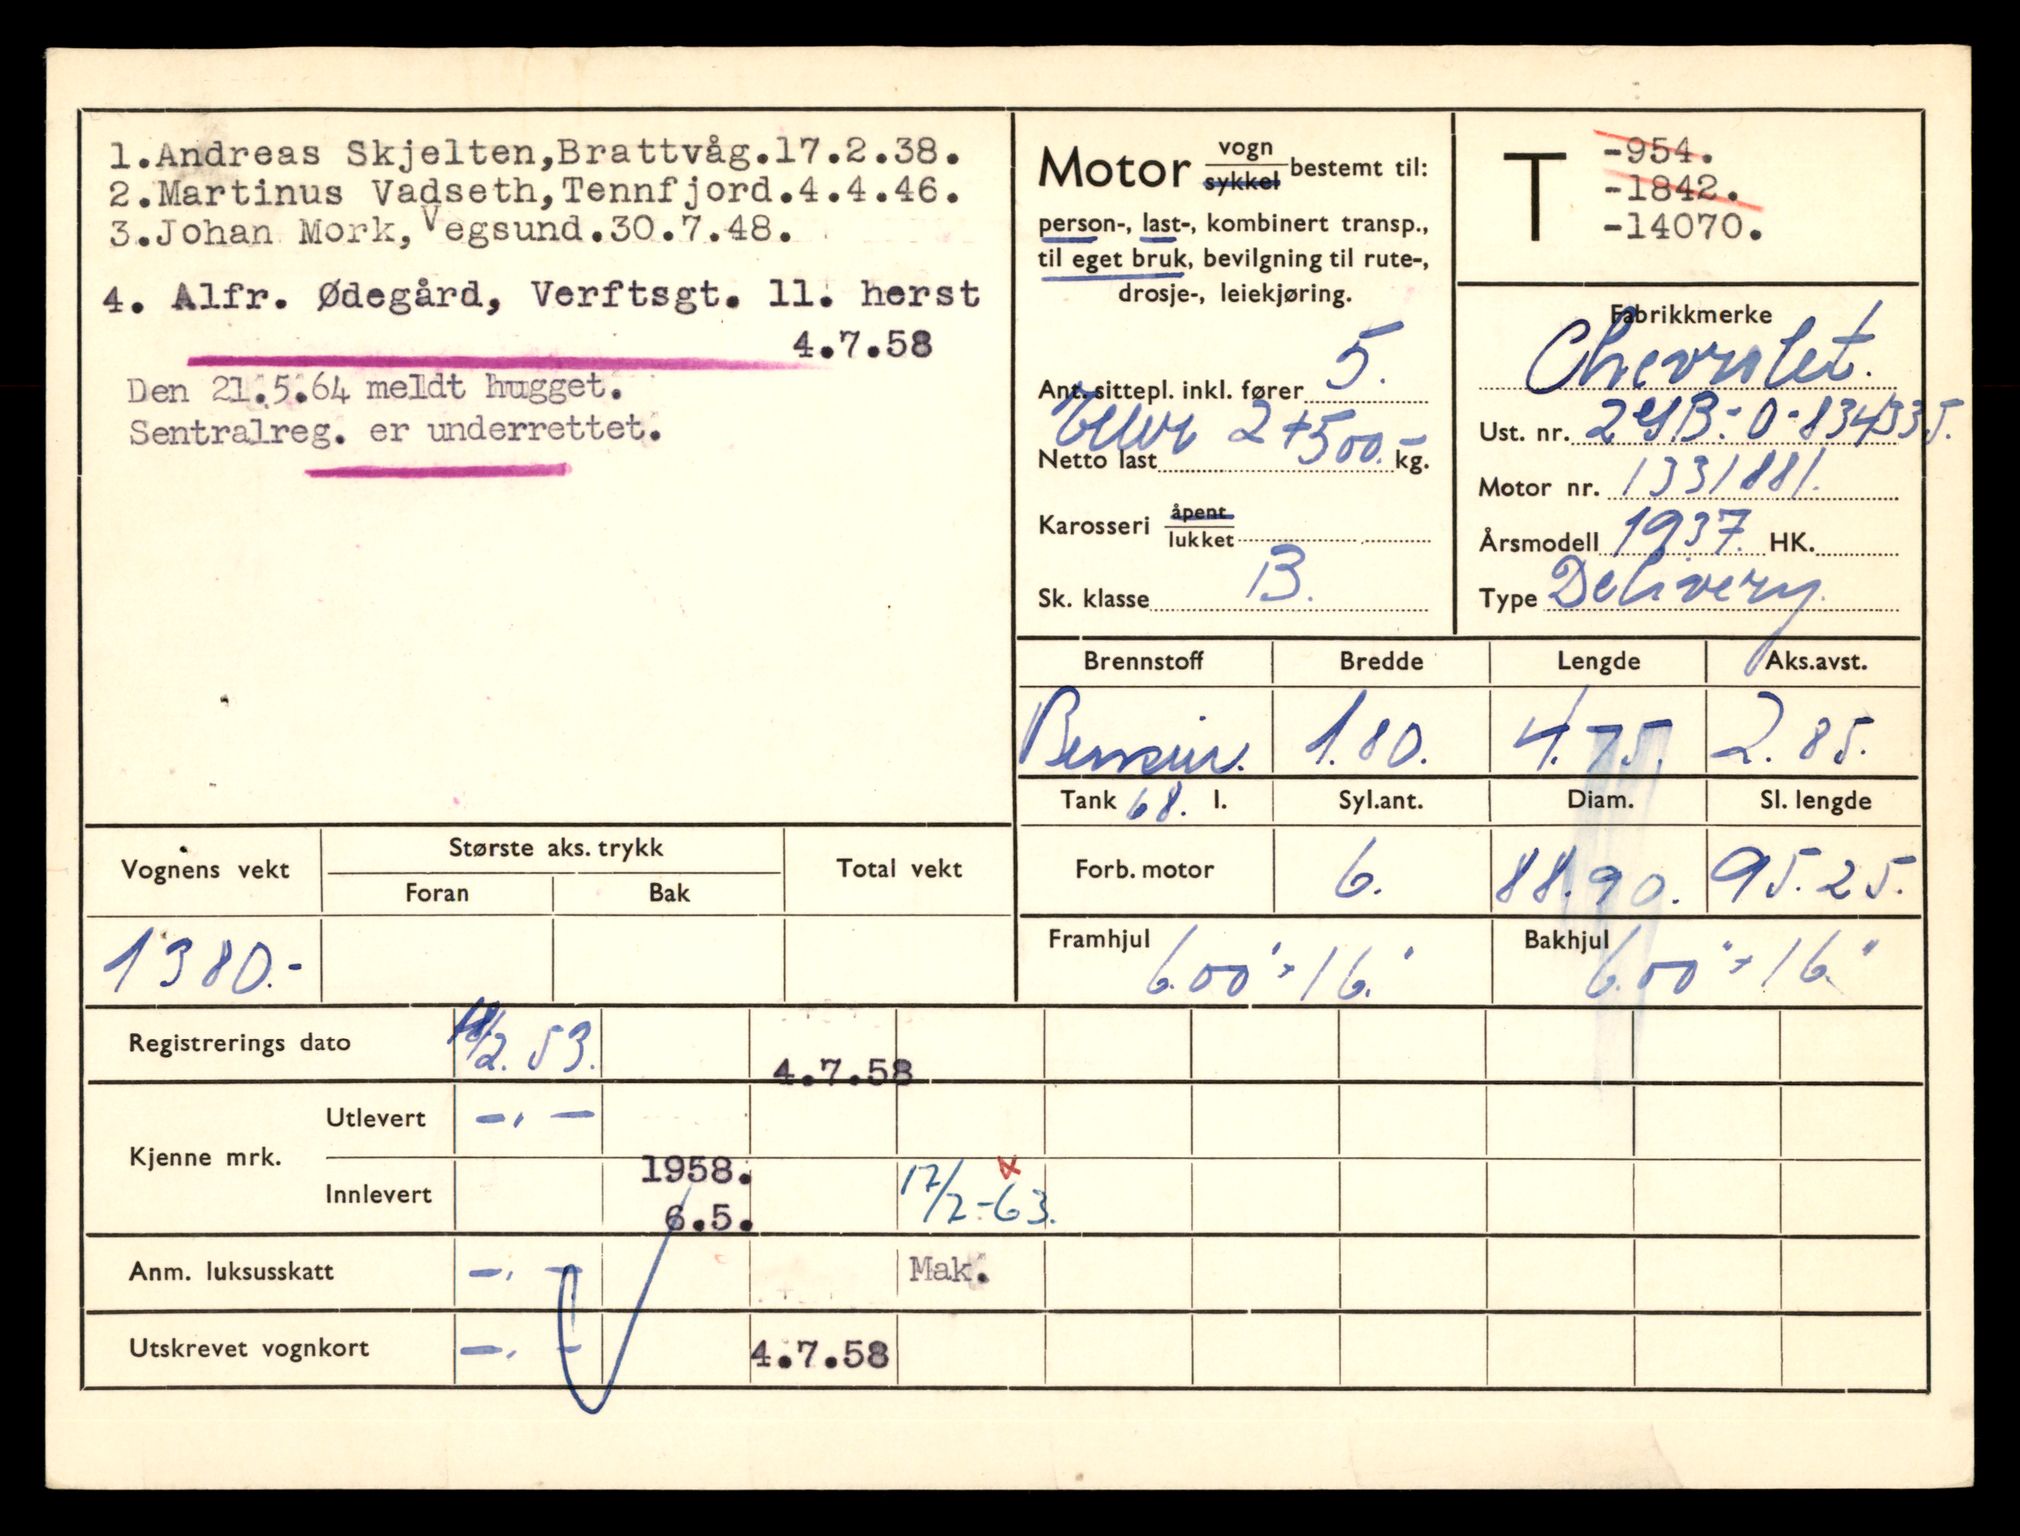 1.Andreas Skjelten,Brattvåg.17.2.38.
2.Martinus Vadseth,Tennfjord.4.4.46.
3.Johan Mork,Vegsund.30.7.48.
4. Alfr. Ødegård, Verftsgt. 11. herst
4.7.58
Den 21.5.64 meldt hugget.
Sentralreg. er underrettet.
Motor vogn
sykkel bestemt til:
person-, last-, kombinert transp.,
til eget bruk, bevilgning til rute-,
drosje-, leiekjøring.
Ant. sittepl. inkl. fører 5.
Eller 2+500.-
Netto last kg.
Karosseri åpent
lukket
Sk. klasse B.
T -954.
-1842.
-14070.
Fabrikkmerke
Chevrolet.
Ust. nr. 2 GB-0-834335.
Motor nr. 1331881.
Årsmodell 1937. HK.
Type Delivery.
Brennstoff Bredde Lengde Aks.avst.
Bensin. 1.80. 4.75. 2.85.
Tank 68. l. Syl.ant. Diam. Sl. lengde
Forb. motor 6. 88.90. 95.25.
Framhjul 6.00"×16." Bakhjul 6.00"×16."
Vognens vekt Største aks. trykk Total vekt
Foran Bak
1380.-
Registrerings dato /2.53. 4.7.58
Kjenne mrk. Utlevert -.-
Innlevert 1958. 17/2-63.
6.5.
Anm. luksusskatt -.- Mak.
Utskrevet vognkort -.- 4.7.58